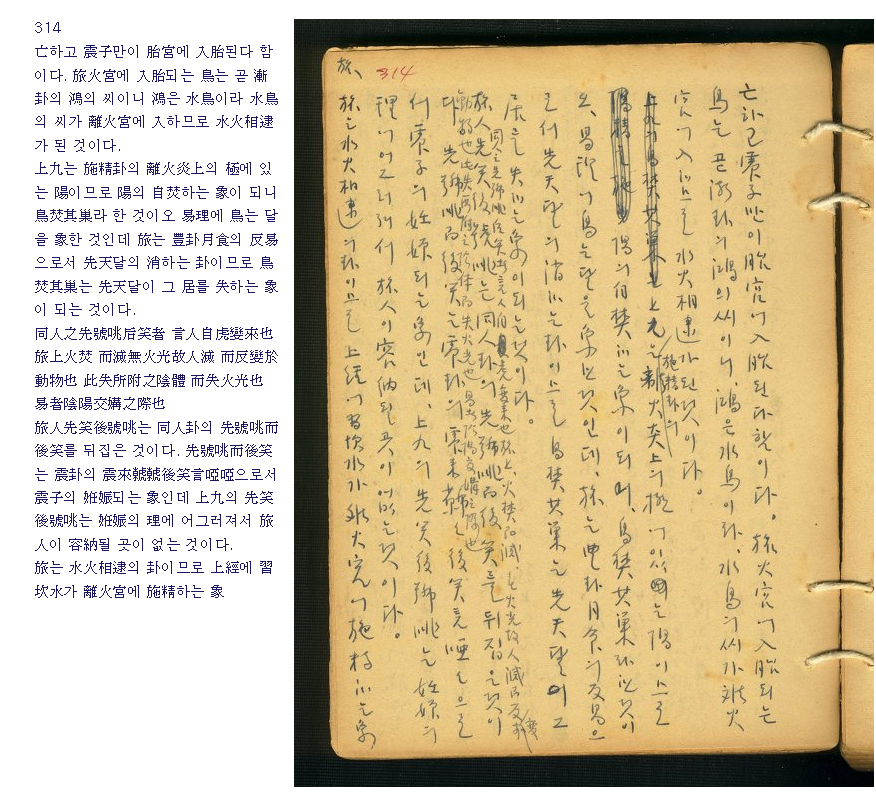 314
亡하고 震子만이 胎宮에 入胎된다 함
이다. 旅火宮에 入胎되는 鳥는 곧 漸
卦의 鴻의 씨이니 鴻은 水鳥이라 水鳥
의 씨가 離火宮에 入하므로 水火相逮
가 된 것이다.
上九은 施精卦의 離火炎上의 極에 있
는 陽이므로 陽의 自焚하는 象이 되니
鳥焚其巢라 한 것이오 易理에 鳥는 달
을 象한 것인데 旅는 豐卦月食의 反易
으로서 先天달의 消하는 卦이므로 鳥
焚其巢는 先天달이 그 居를 失하는 象
이 되는 것이다.
同人之先號咷后笑者 言人自虎變來也
旅上火焚 而滅無火光故人滅 而反變於
動物也 此失所附之陰體 而失火光也
易者陰陽交媾之際也
旅人先笑後號咷는 同人卦의 先號咷而
後笑를 뒤집은 것이다. 先號咷而後笑
는 震卦의 震來虩虩後笑言啞啞으로서
震子의 姙娠되는 象인데 上九의 先笑
後號咷는 姙娠의 理에 어그러져서 旅
人이 容納될 곳이 없는 것이다.
旅는 水火相逮의 卦이므로 上經에 習
坎水가 離火宮에 施精하는 象
旅、 314
亡하고 震子만이 胎宮에 入胎된다 함이다. 旅火宮에 入胎되는
鳥는 곧 漸卦의 鴻의 씨이니, 鴻은 水鳥이라, 水鳥의 씨가 離火
宮에 入하므로 水火相逮가 된 것이다.
上九는 施精卦의 離火炎上의 極에 있는 陽이므로
陽의 自焚하는 象이 되며, 鳥焚其巢라 한 것이
오, 易理에 鳥는 달을 象한 것인데, 旅는 豐卦月食의 反易으
로서 先天달의 消하는 卦이므로 鳥焚其巢는 先天달이 그
居를 失하는 象이 되는 것이다.
旅人先笑後號咷는 同人卦의 先號咷而後笑를 뒤집은 것이
다. 先號咷而後笑는 震卦의 震來虩虩後笑言啞啞으로
서 震子의 姙娠되는 象인데, 上九의 先笑後號咷는 姙娠의
理에 어그러져서 旅人이 容納될 곳이 없는 것이다.
旅는 水火相逮의 卦이므로 上經에 習坎水가 離火宮에 施精하는 象